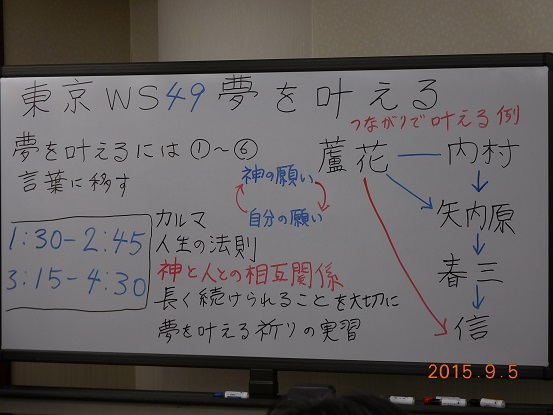 東京WS49夢を叶える
つながりで叶える例
夢を叶えるには①〜⑥
言葉に移す
神の願い
自分の願い
1:30-2:45
3:15-4:30
カルマ
人生の法則
神と人との相互関係
長く続けられることを大切に
夢を叶える祈りの実習
蘆花 内村
矢内原
春三
信
2015.9.5